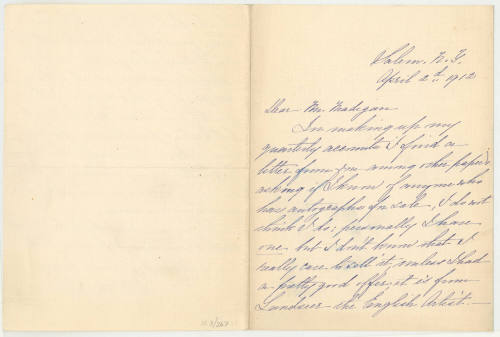 Salem. N. Y.
April 2d. 1912
Dear Mr. Madigan
In making up my
quarterly accounts I find a
letter from you among other papers
asking if I know of anyone who
has autographs for sale, I do not
think I do; personally I have
one but I don't know that I
really care to sell it, unless I had
a pretty good offer, it is from
Landseer the English Artist. —